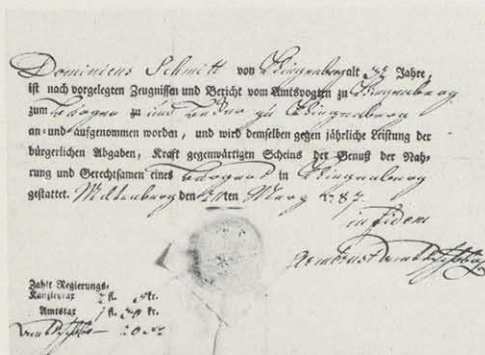 Dominicus Schmitt von Klingenberg alt 32 Jahre,
ist nach vorgelegten Zeugnissen und Bericht vom Amtsvogten zu Klingenberg
zum Bürger und zu Klingenberg
an- und aufgenommen worden, und wird demselben gegen jährliche Leistung der
bürgerlichen Abgaben, Kraft gegenwärtigen Scheins der Genuß der Nah-
rung und Gerechtsamen eines Bürgers in Klingenberg
gestattet. Miltenberg den ten Merz 87.
in Fidem
Zahlt Regierungs-
Kanzleytax fl. kr.
Amtstax 1 fl. 30 kr.
20